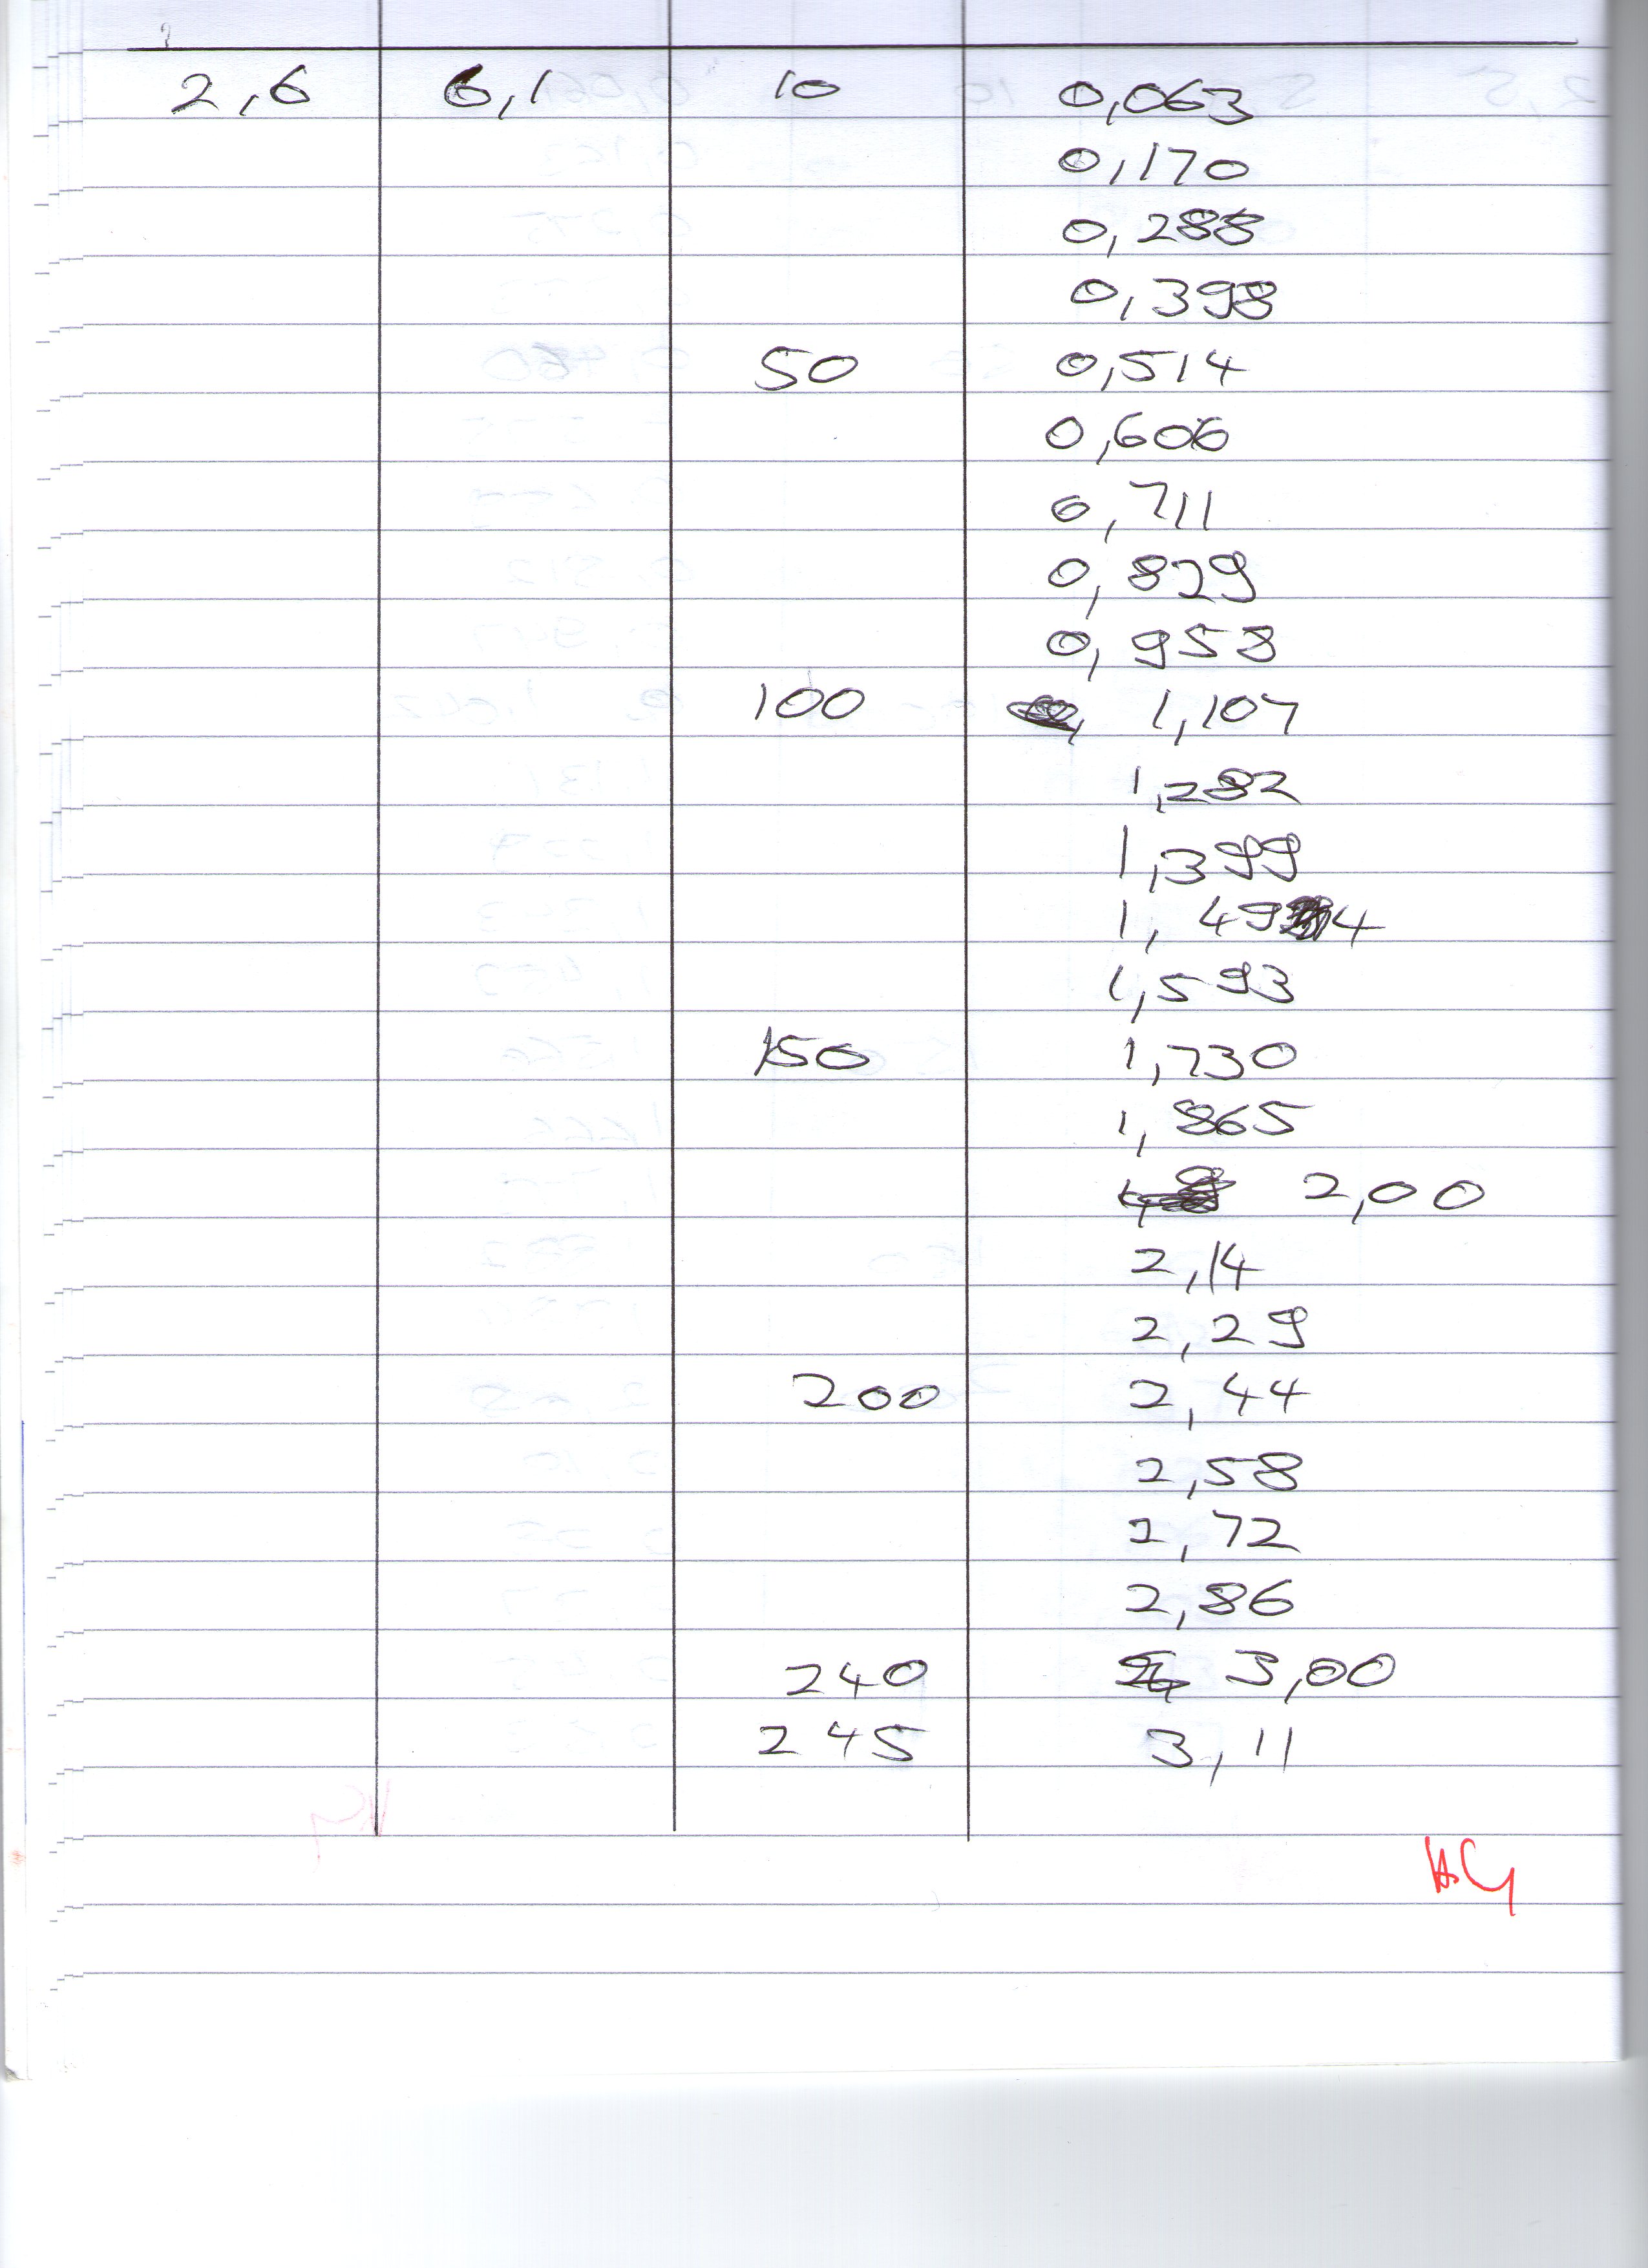 2,6 6,1 10 0,063
0,170
0,288
0,398
50 0,514
0,606
0,711
0,829
0,958
100 1,107
1,282
1,399
1,494
1,593
150 1,730
1,865
2,00
2,14
2,29
200 2,44
2,58
2,72
2,86
240 3,00
245 3,11